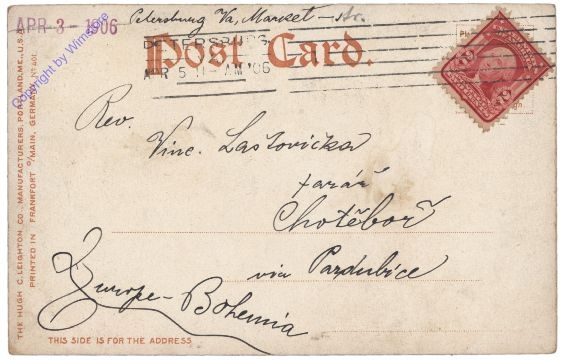 APR - 3 - 1906
Petersburg Va, Market St.
Post Card.
PETERSBURG
APR 5 11-AM '06
Rev.
Vinc. Lastovička
farář
Chotěboř
via Pardubice
Europe - Bohemia
THIS SIDE IS FOR THE ADDRESS
THE HUGH C. LEIGHTON CO., MANUFACTURERS, PORTLAND, ME., U.S.A.
PRINTED IN FRANKFORT O/MAIN, GERMANY. No 401.
Copyright by Wimshire